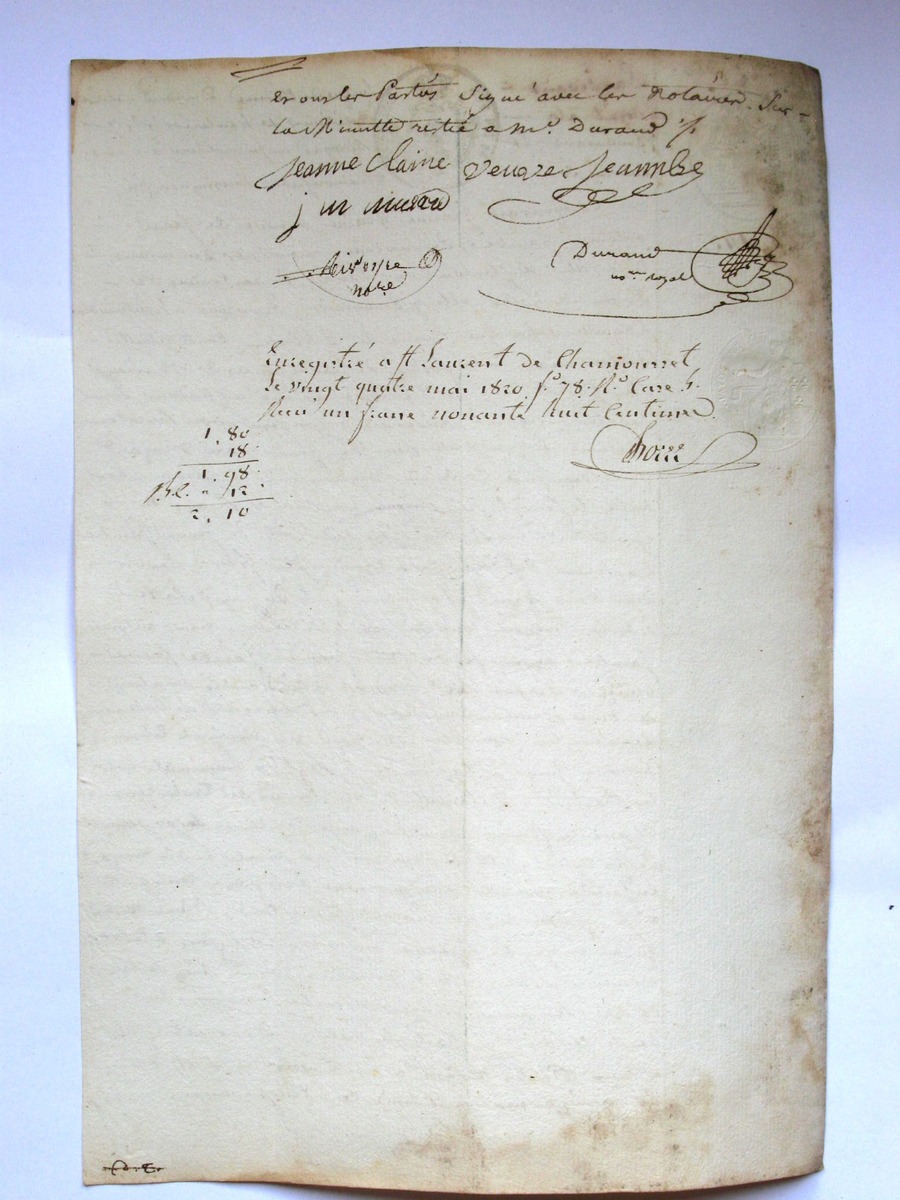 et ont les Parties Signé avec les Notaires. Sur
la Minutte restée a Me. Durand ./.
jeanne Claine veuve
j m
notre
Durand
nore. royal
Enregistré a St Laurent de Chamousset
Le vingt quatre mai 1820 fo. 78. Ro. Case 5.
Recu un franc nonante huit Centimes.
1,80
18
1,98
12
2,10